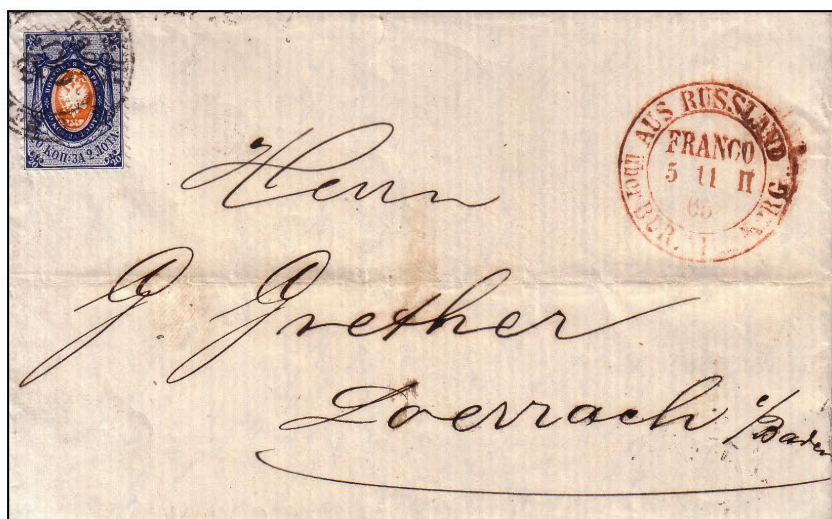 20 КОП: ЗА 2 ЛОТА
AUS RUSSLAND
FRANCO
5 11 II
65
über
Herrn
G. Grether
Loerrach i/Baden